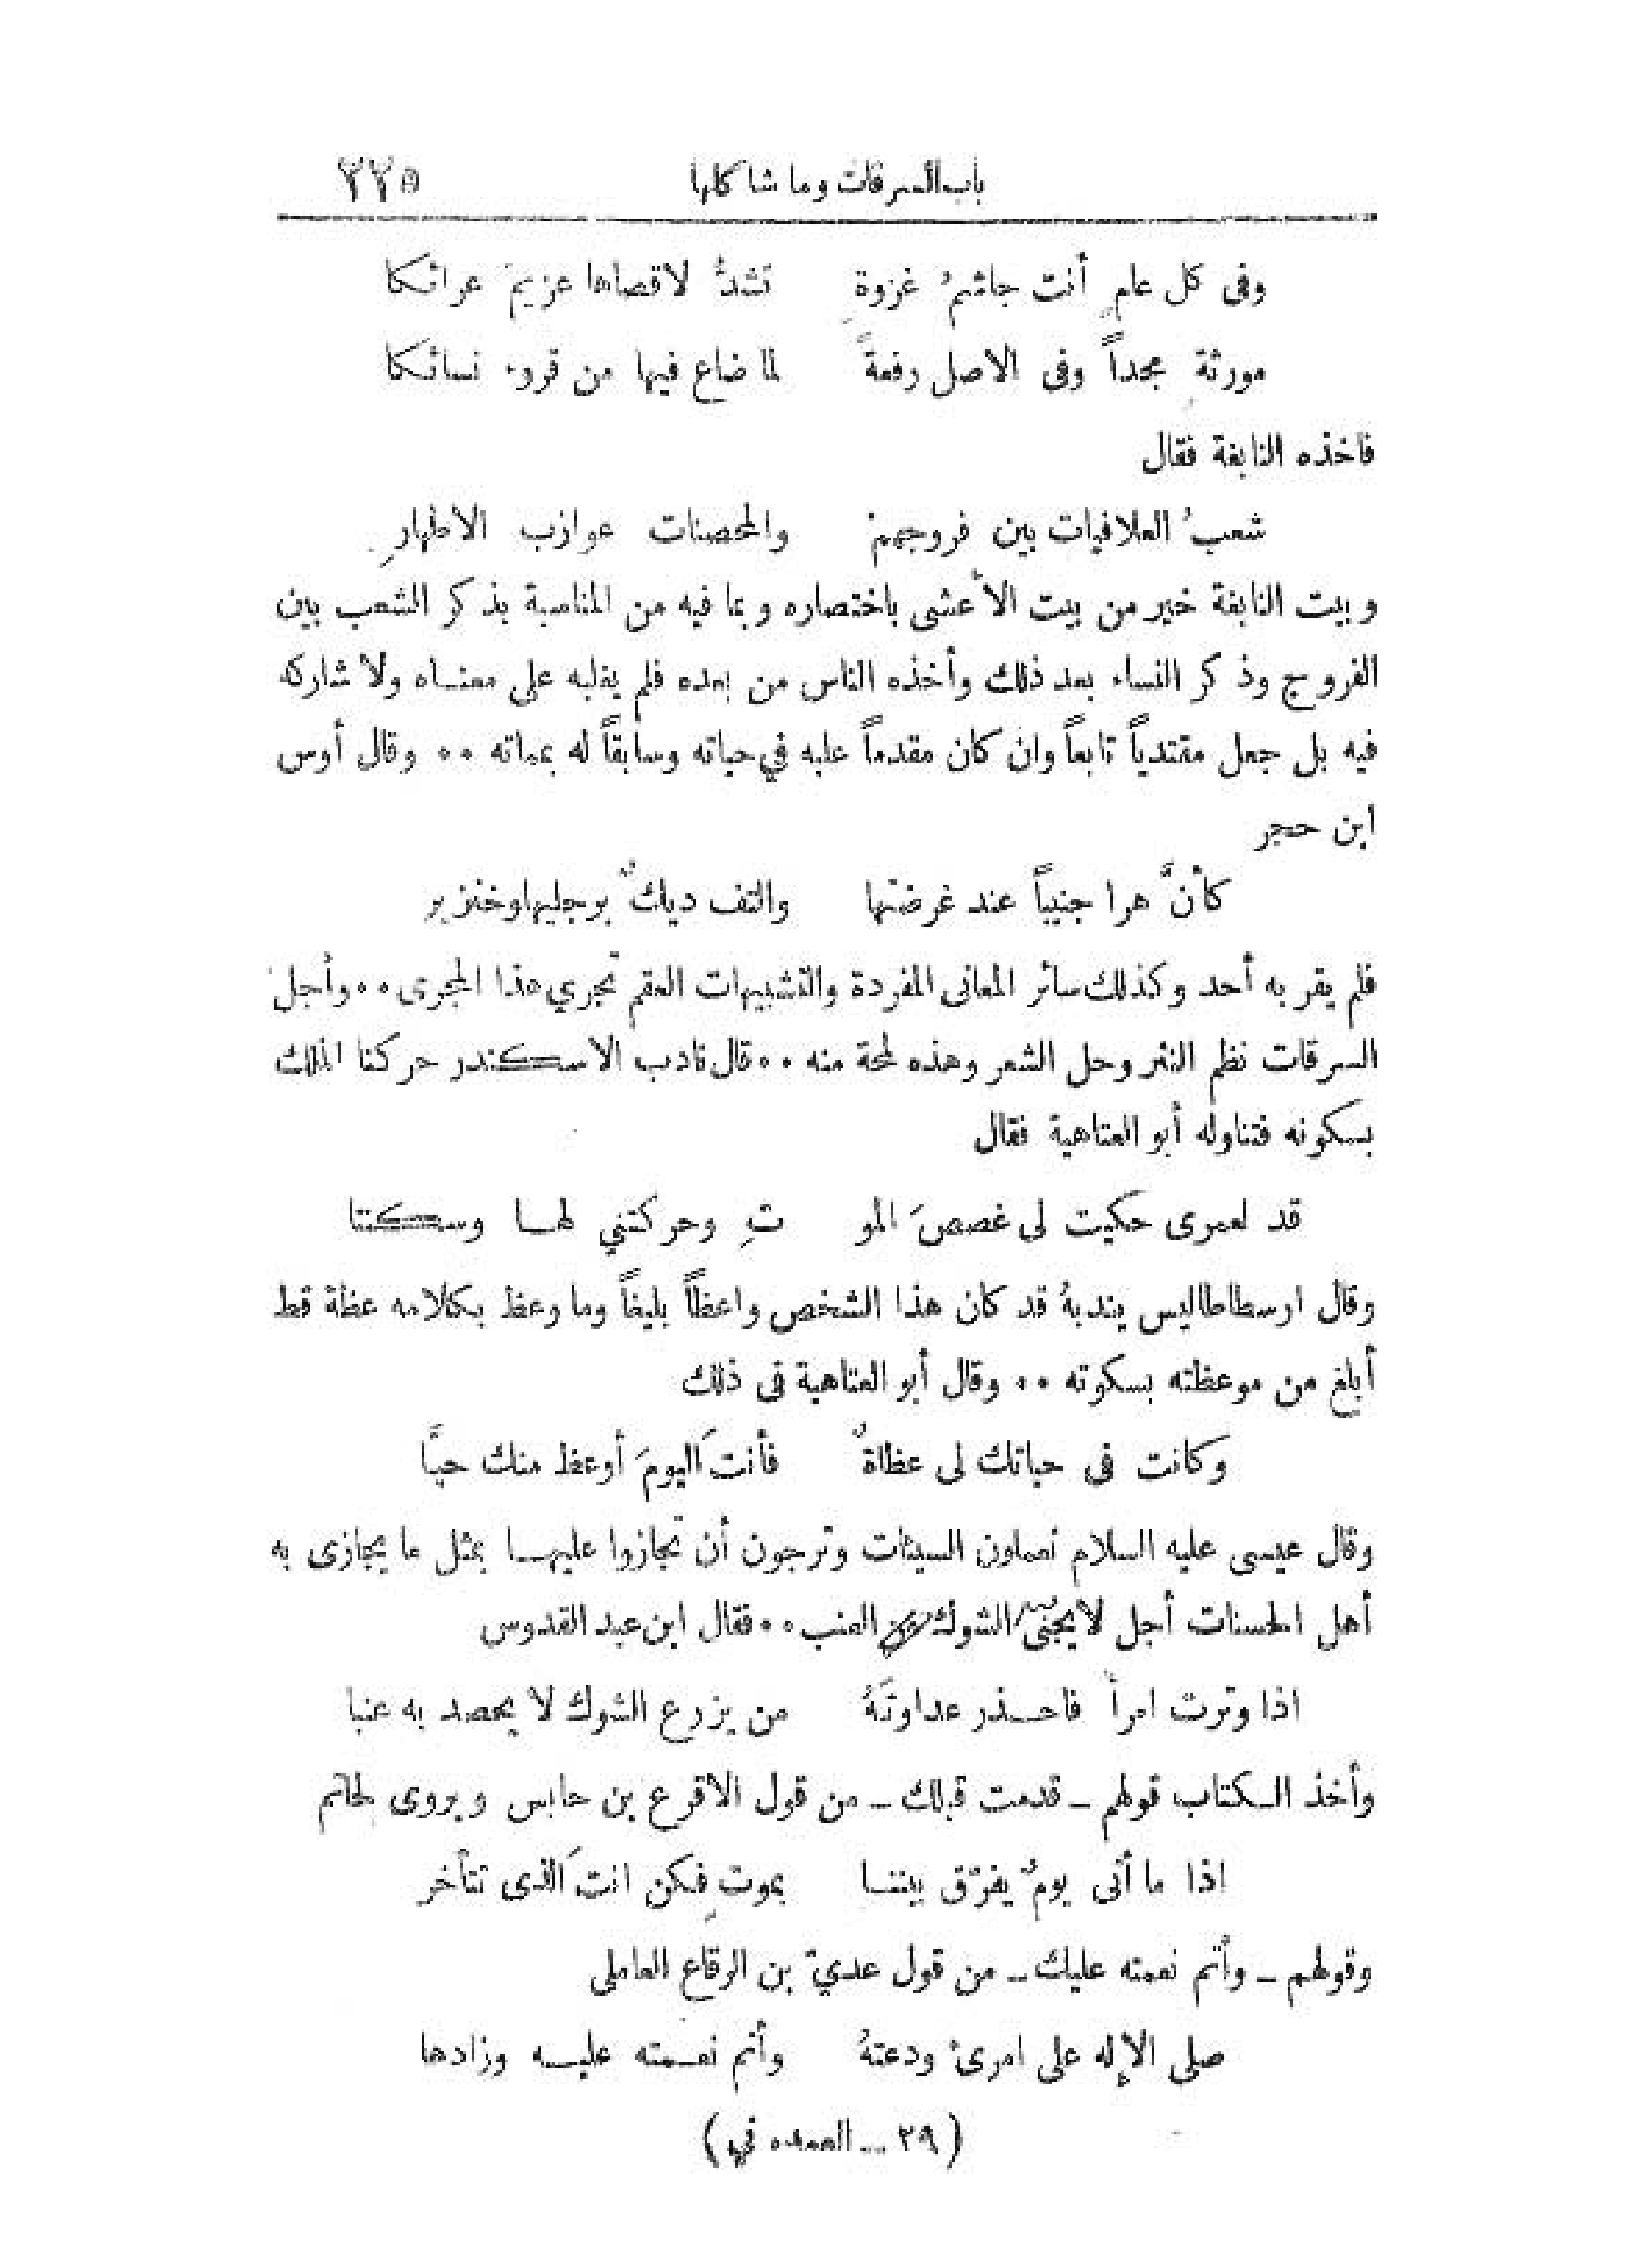 باب السرقات وما شاكلها ٢٢٥
وفى كل عامٍ أنت جاشمُ غزوةٍ تشدُّ لاقصاها عزيمَ عرائكا
مورثةٍ مجداً وفى الاصل رفعةً لما ضاع فيها من قروء نسائكا
فاخذه النابغة فقال
شعبُ العلافيات بين فروجهمْ والمحصنات عوازب الاطهارِ
وبيت النابغة خير من بيت الأعشى باختصاره وبما فيه من المناسبة بذكر الشعب بين
الفروج وذكر النساء بعد ذلك وأخذه الناس من بعده فلم يغلبه على معناه ولا شاركه
فيه بل جعل مقتدياً تابعاً وان كان مقدماً عليه في حياته وسابقاً له بمماته ٠٠ وقال أوس
ابن حجر
كأنَّ هرا جنيباً عند غرضتها والتف ديكٌ برجليها وخنزير
فلم يقر به أحد وكذلك سائر المعانى المفردة والتشبيهات العقم تجري هذا المجرى ٠٠ وأجل
السرقات نظم النثر وحل الشعر وهذه لمحة منه ٠٠ قال نادب الاسكندر حركنا الملك
بسكونه فتناوله أبو العتاهية فقال
قد لعمرى حكيت لى غصصَ المو تِ وحركتني لها وسكنتا
وقال ارسطاطاليس يندبهُ قد كان هذا الشخص واعظاً بليغاً وما وعظ بكلامه عظة قط
أبلغ من موعظته بسكوته ٠٠ وقال أبو العتاهية فى ذلك
وكانت فى حياتك لى عظاتٌ فأنتَ اليومَ أوعظ منك حيَّا
وقال عيسى عليه السلام تعملون السيئات وترجون أن تجازوا عليها بمثل ما يجازى به
أهل الحسنات أجل لا يجنى الشوك من العنب ٠٠ فقال ابن عبد القدوس
اذا وترت امرأً فاحذر عداوتَهُ من يزرع الشوك لا يحصد به عنبا
وأخذ الكتاب قولهم ــ قدمت قبلك ــ من قول الاقرع بن حابس ويروى لحاتم
اذا ما أتى يومٌ يفرّق بيننا بموتٍ فكن انتَ الذى تتأخر
وقولهم ــ وأتم نعمته عليك ــ من قول عديّ بن الرقاع العاملى
صلى الإله على امرئ ودعتهُ وأتم نعمته عليه وزادها
(٢٩ ــ العمده في)